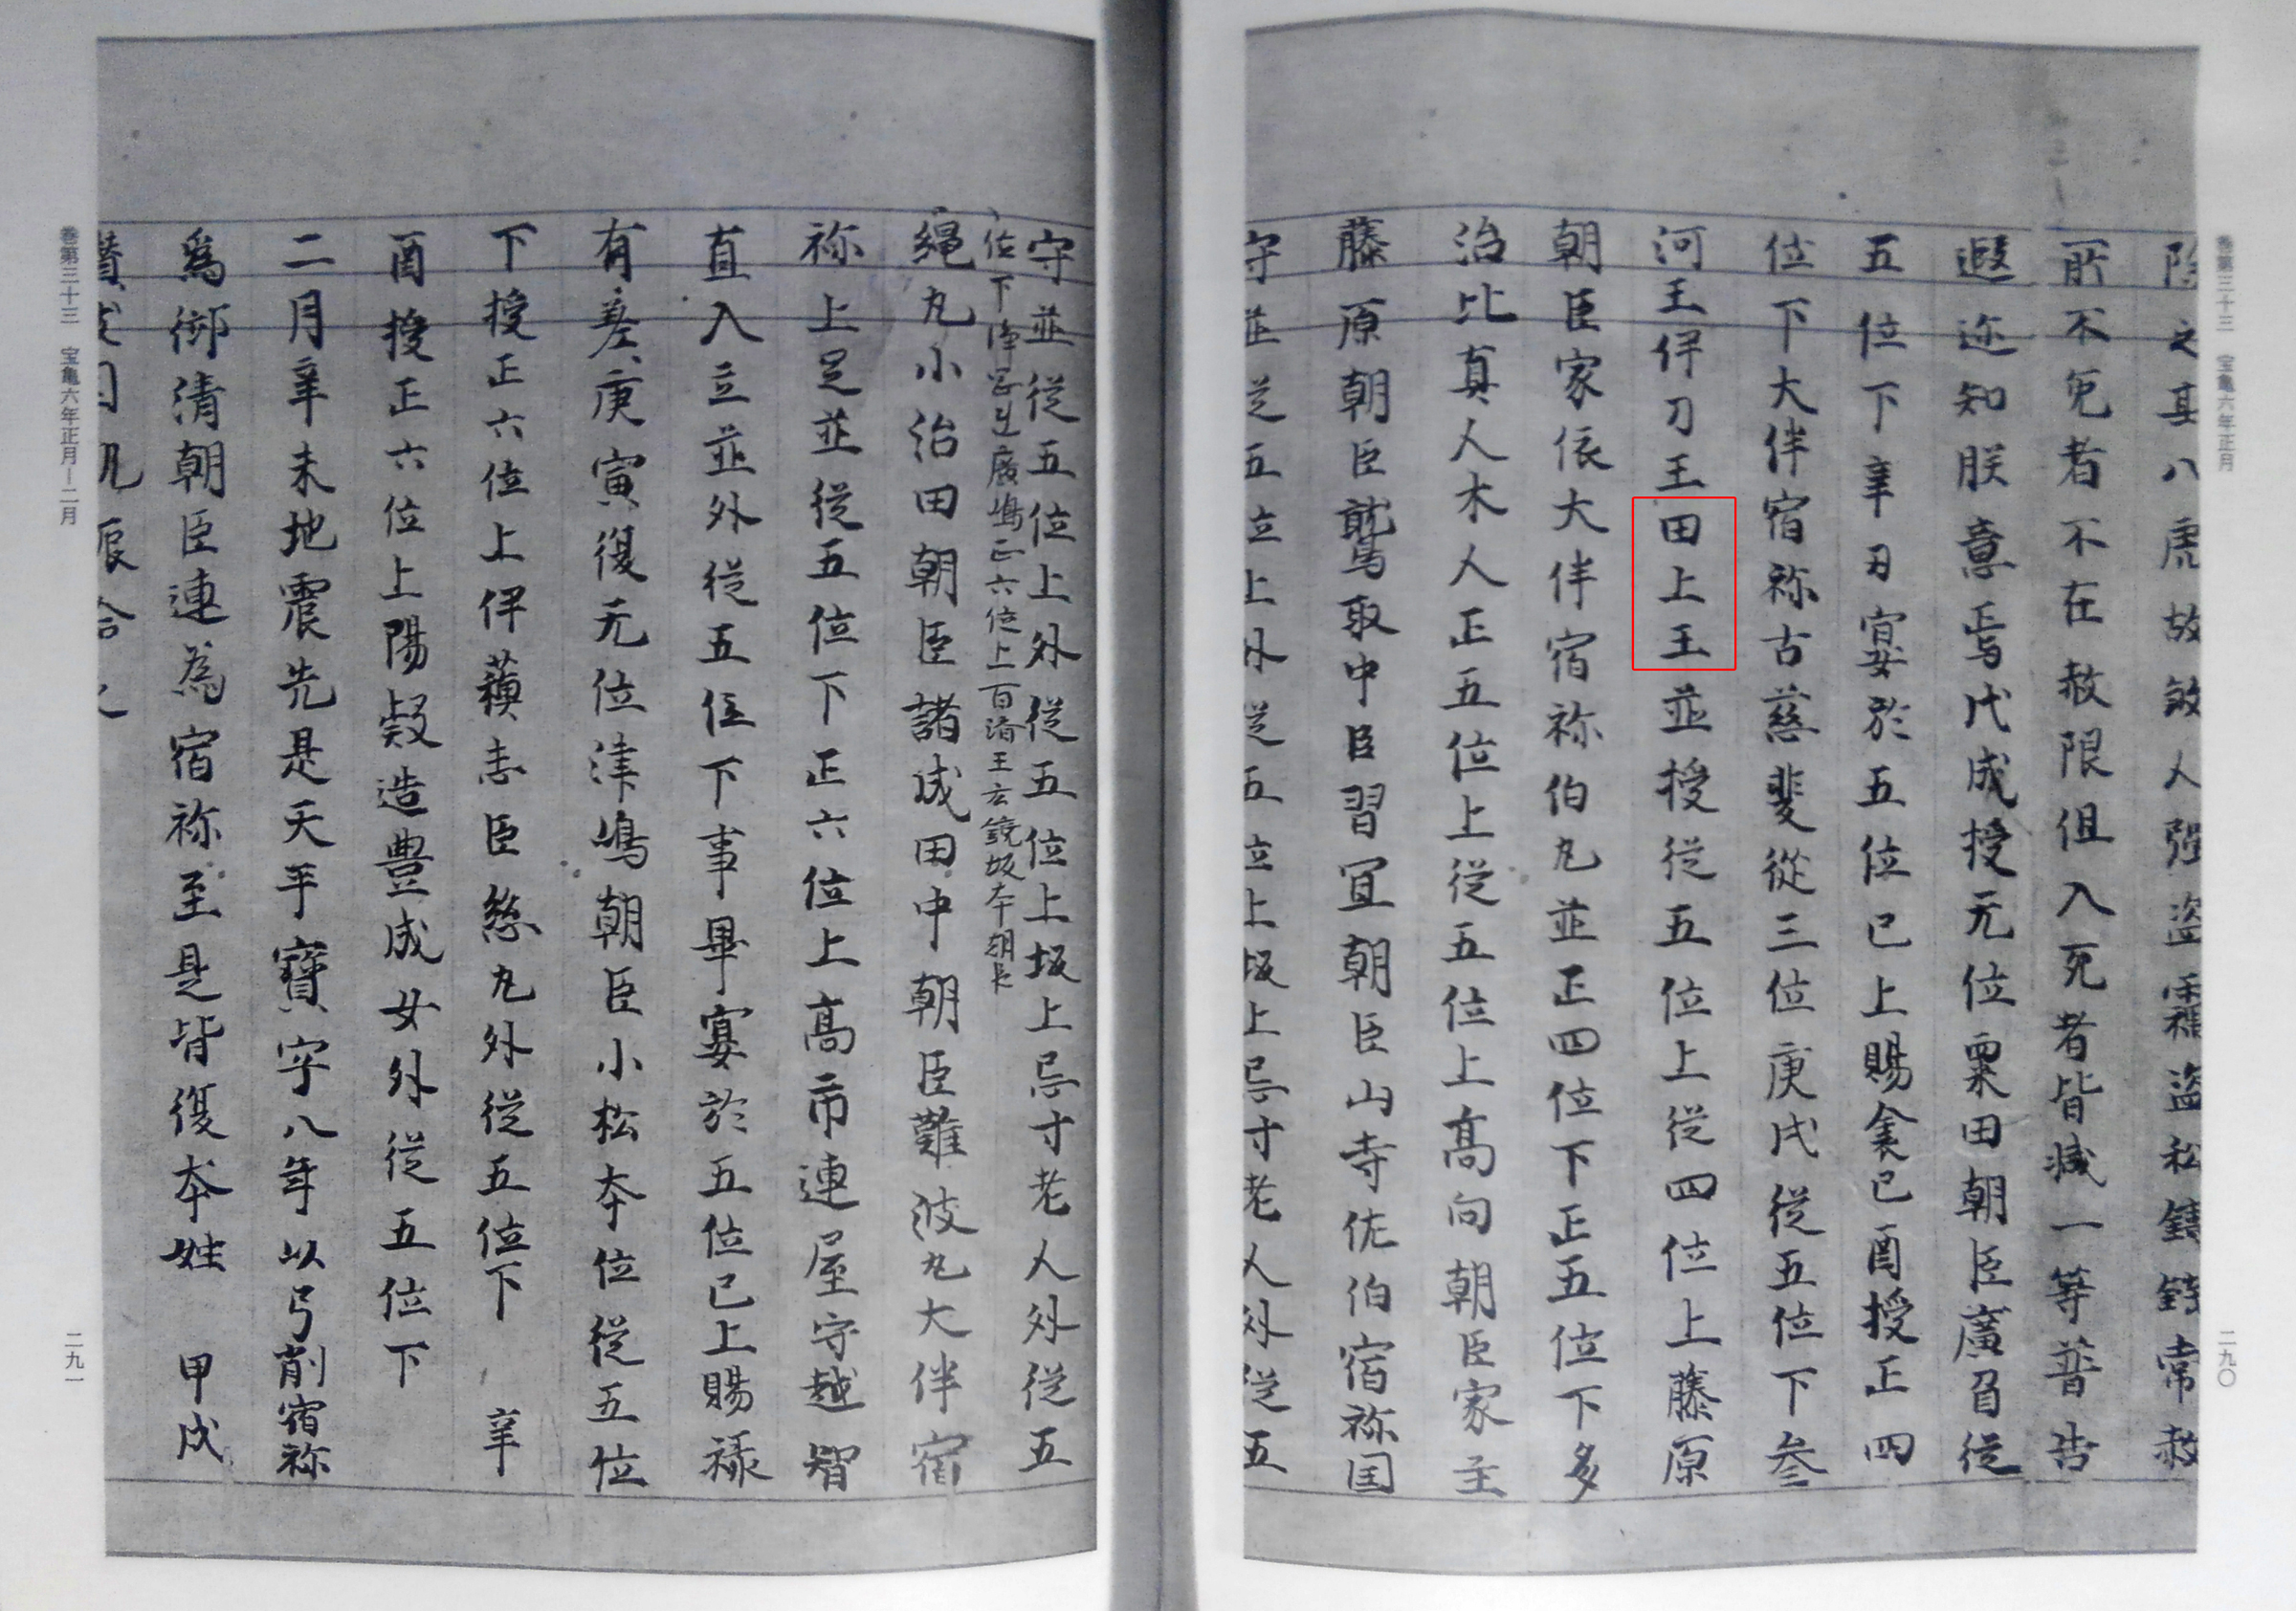 巻第三十三 宝亀六年正月
二九〇
除之其八虐故敏人强盗竊盗私鑄錢常赦
所不免者不在赦限但入死者皆減一等普告
遐迩知朕意焉戊成授无位粟田朝臣廣刀從
五位下辛丑宴於五位已上賜䘸己酉授正四
位下大伴宿祢古慈斐從三位庚戌從五位下参
河王伊刀王田上王並授從五位上從四位上藤原
朝臣家依大伴宿祢伯丸並正四位下正五位下多
治比真人木人正五位上從五位上高向朝臣家主
藤原朝臣鷲取中臣習宜朝臣山寺佐伯宿祢国
守並從五位上外從五位上坂上忌寸老人外從五
守並從五位上外從五位上坂上忌寸老人外從五
位下浄岡連廣嶋正六位上百済王玄鏡坂本朝臣
縄丸小治田朝臣諸成田中朝臣難波丸大伴宿
祢上足並從五位下正六位上高市連屋守越智
直入立並外從五位下事畢宴於五位已上賜禄
有差庚寅復无位津嶋朝臣小松本位從五位
下授正六位上伊蘓志臣総丸外從五位下 辛
酉授正六位上陽疑造豊成女外從五位下
二月辛未地震先是天平寶字八年以弓削宿祢
為御清朝臣連為宿祢至是皆復本姓 甲戌
巻第三十三 宝亀六年正月―二月
二九一